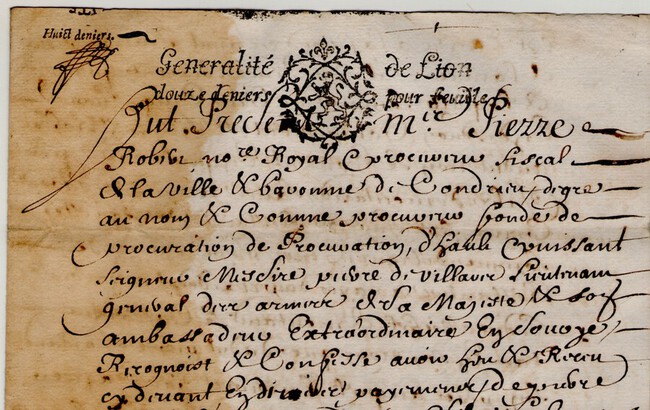 Huict deniers.
Generalité de Lion
douze deniers pour feuille
fut Present mre Pierre
Robert nore Royal & procureur fiscal
de la ville & baronnie de Condrieu, de gre
au nom & Comme procureur fonde de
procuration de Procuration, d'hault & puissant
seigneur Messire pierre de villars Lieutenant
general des armees de La Majeste & son
ambassadeur Extraordinaire En Savoye
Recognoist & Confesse avoir heu & Receu
cy devant, En divers payements, de